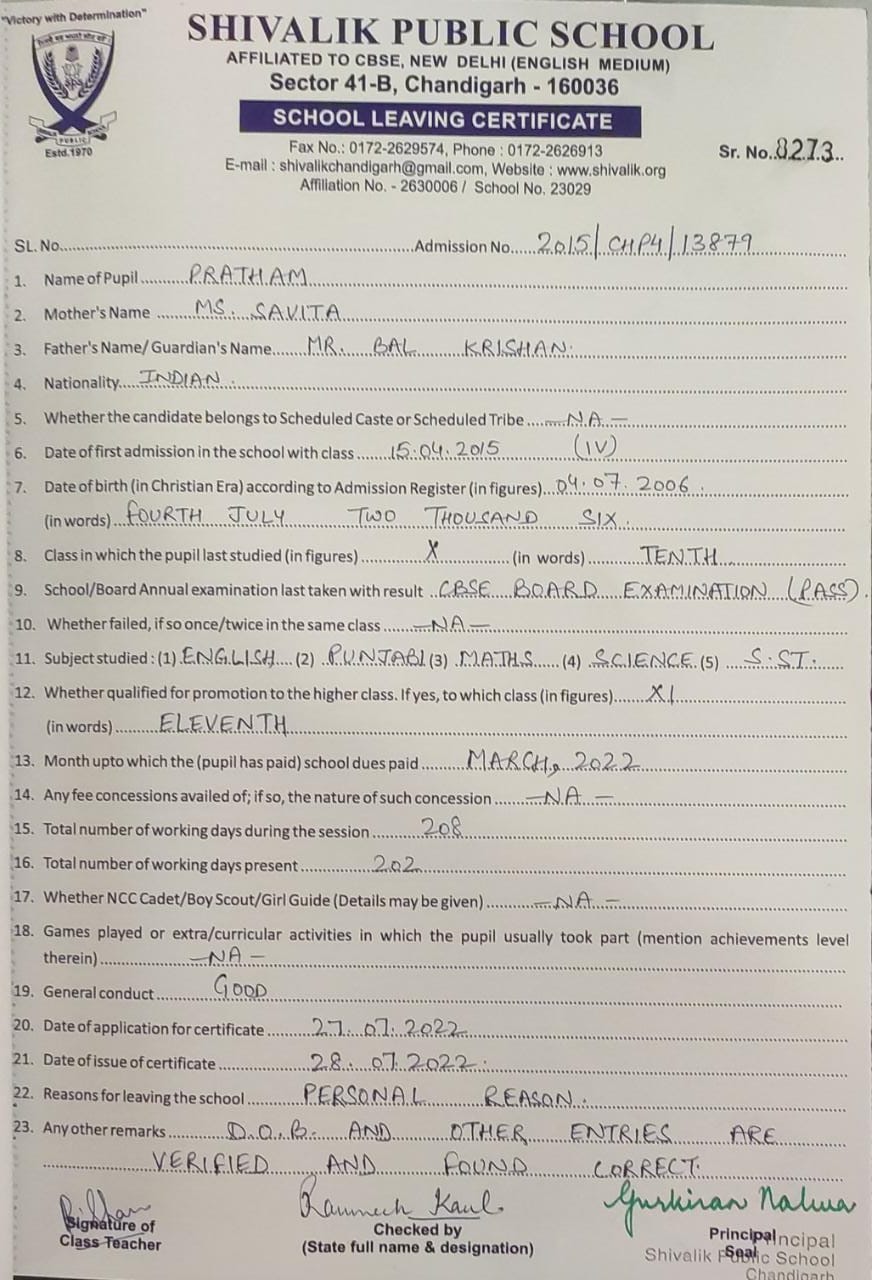 "Victory with Determination"
SHIVALIK PUBLIC SCHOOL
AFFILIATED TO CBSE, NEW DELHI (ENGLISH MEDIUM)
Sector 41-B, Chandigarh - 160036
SCHOOL LEAVING CERTIFICATE
PUBLIC
Estd.1970
Fax No.: 0172-2629574, Phone : 0172-2626913
E-mail : shivalikchandigarh@gmail.com, Website : www.shivalik.org
Affiliation No. - 2630006 / School No. 23029
Sr. No. 8273
SL. No. Admission No. 2015/CHP4/13879
1. Name of Pupil PRATHAM
2. Mother's Name MS. SAVITA
3. Father's Name/ Guardian's Name MR. BAL KRISHAN.
4. Nationality INDIAN.
5. Whether the candidate belongs to Scheduled Caste or Scheduled Tribe —NA—
6. Date of first admission in the school with class 15.04.2015 (IV)
7. Date of birth (in Christian Era) according to Admission Register (in figures) 04.07.2006.
(in words) FOURTH JULY TWO THOUSAND SIX.
8. Class in which the pupil last studied (in figures) X (in words) TENTH
9. School/Board Annual examination last taken with result CBSE BOARD EXAMINATION (PASS).
10. Whether failed, if so once/twice in the same class —NA—
11. Subject studied : (1) ENGLISH (2) PUNJABI (3) MATHS (4) SCIENCE (5) S.ST.
12. Whether qualified for promotion to the higher class. If yes, to which class (in figures) XI
(in words) ELEVENTH
13. Month upto which the (pupil has paid) school dues paid MARCH, 2022
14. Any fee concessions availed of; if so, the nature of such concession —NA—
15. Total number of working days during the session 208
16. Total number of working days present 202
17. Whether NCC Cadet/Boy Scout/Girl Guide (Details may be given) —NA—
18. Games played or extra/curricular activities in which the pupil usually took part (mention achievements level
therein) —NA—
19. General conduct GOOD
20. Date of application for certificate 27.07.2022
21. Date of issue of certificate 28.07.2022.
22. Reasons for leaving the school PERSONAL REASON.
23. Any other remarks D.O.B. AND OTHER ENTRIES ARE
VERIFIED AND FOUND CORRECT.
Kaul Gurkiran Nalwa
Signature of
Class Teacher
Checked by
(State full name & designation)
Principal
Seal
Principal
Shivalik Public School
Chandigarh